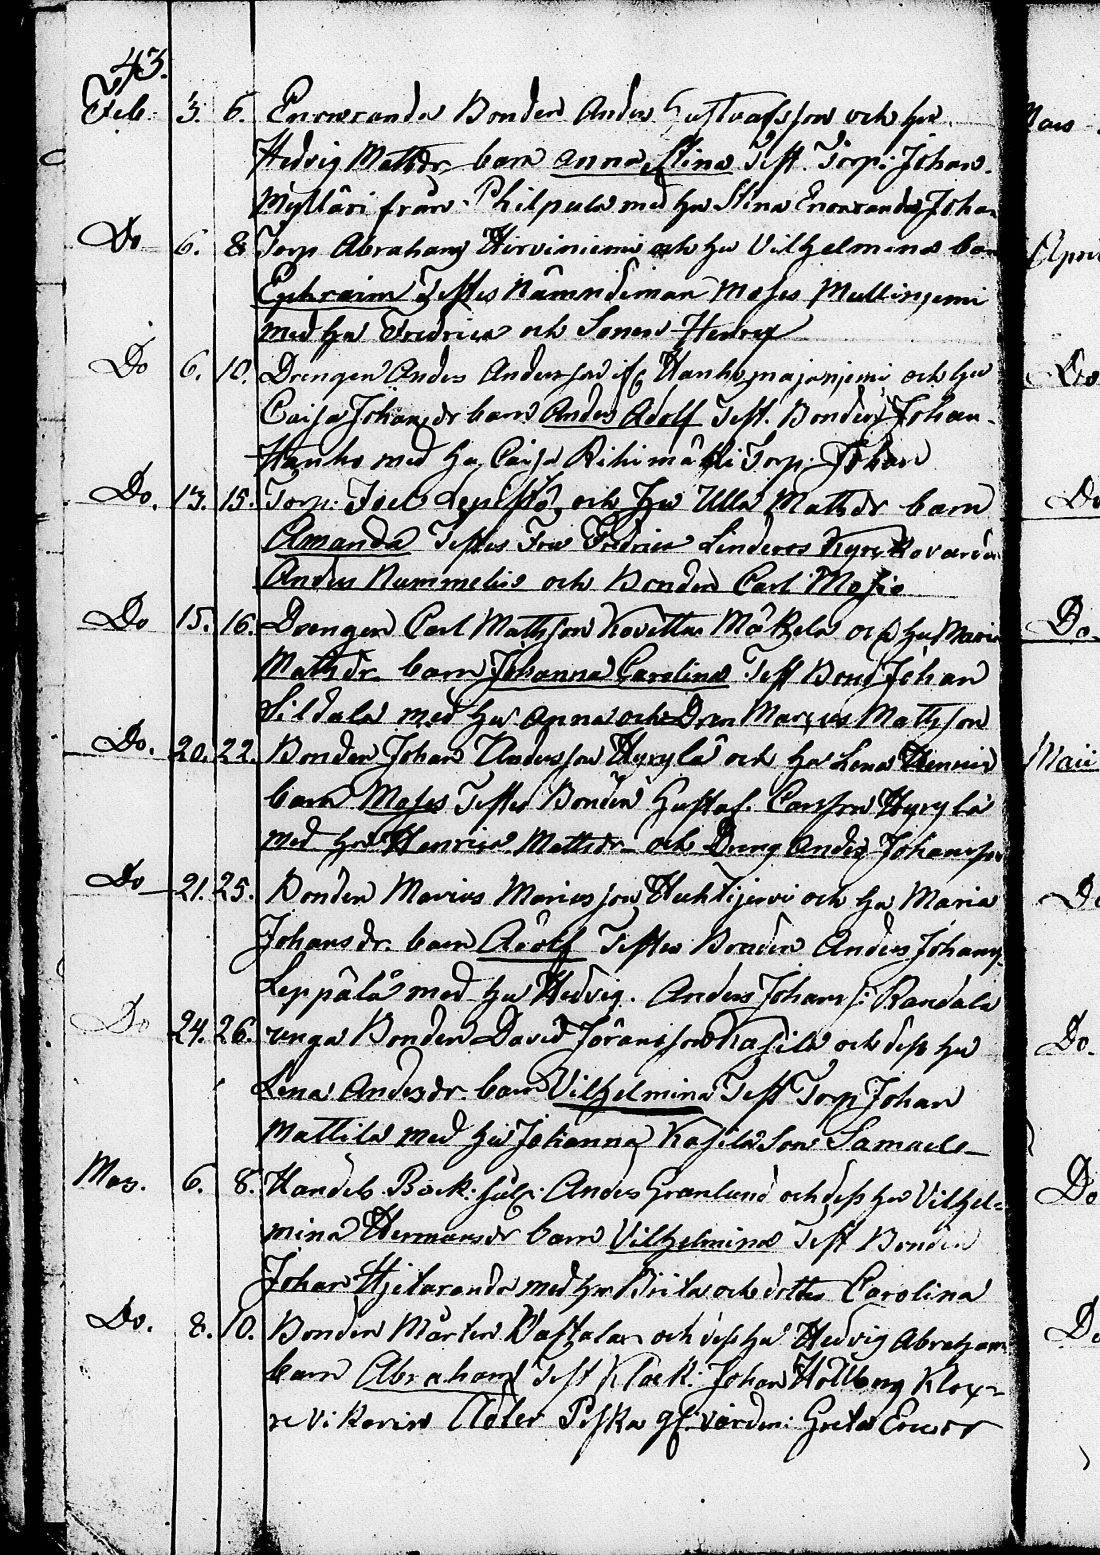 43.
Feb. 3. 6. Enowranda Bonden Anders Gustafsson och hu
Hedvig Matsdr barn Anna Stina Test. Torp: Johan
Myllari från Philpula med hu Stina Enowranda Johan
Do 6. 8 Torp Abraham Hirviniemi och hu Vilhelmina barn
Ephraim Testes Nämndeman Moses Mullinjemi
med hu Fredrica och Sonen Henry
Do 6. 10. Drengen Anders Andersson Hanho och hu
Caisa Johansdr barn Anders Adolf Test. Bonden Johan
Hanho med hu Caisa Rihimäki Torp. Johan
Do. 13. 15. Torp: Joel Lepistö och hu Ulla Matsdr barn
Amanda Testes Fru Fredrica Linderos Kyrkovärden
Anders Nummelin och Bonden Carl
Do 15. 16. Drengen Carl Matsson Mäkelä och hu Maria
Matsdr barn Johanna Carolina Test Bond Johan
Sildala med hu Anna och Dren Marcus Matsson
Do. 20. 22. Bonden Johan Andersson Hyrylä och hu Lena
barn Moses Testes Bonden Gustaf Carlsson Hyrylä
med hu Henrica Matsdr och Dreng Anders Johansson
Do 21. 25. Bonden Marius Mariusson och hu Maria
Johansdr barn Adolf Testes Bonden Anders Johans
Leppälä med hu Hedvig. Anders Johans Randala
Do 24. 26. unga Bonden David Göransson Kasila och dess hu
Lena Andersdr barn Vilhelmina Test Torp Johan
Mattila med hu Johanna Kasila Son Samuel
Mars. 6. 8. Handels Bock: Anders Granlund och dess hu Vilhel=
mina Hermansdr barn Vilhelmina Test Bonden
Johan Hjetaranda med hu Brita och dottr Carolina
Do. 8. 10. Bonden Mårten Rastalan och dess hu Hedvig Abraham
barn Abraham Test Klock: Johan Hollberg Klock=
re Vikarien Adler Piska gf. värden: Greta
Mars
April
Do
Do
Do.
Maii
Do
Do.
Do
Do